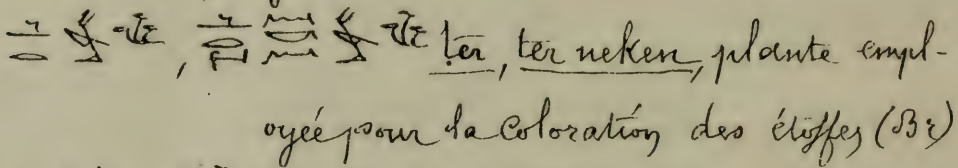 ter, ter neken, plante empl-
oyée pour la coloration des étoffes (Br)